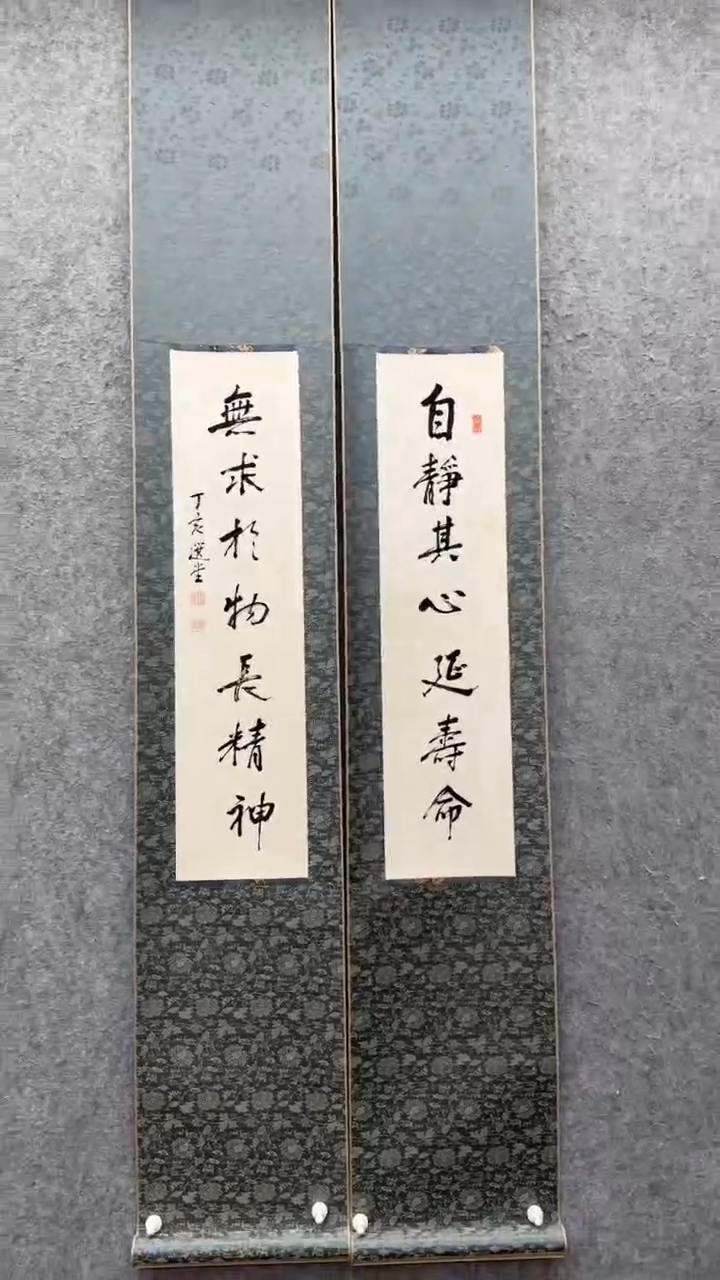 自靜其心延壽命
無求於物長精神
丁亥選堂